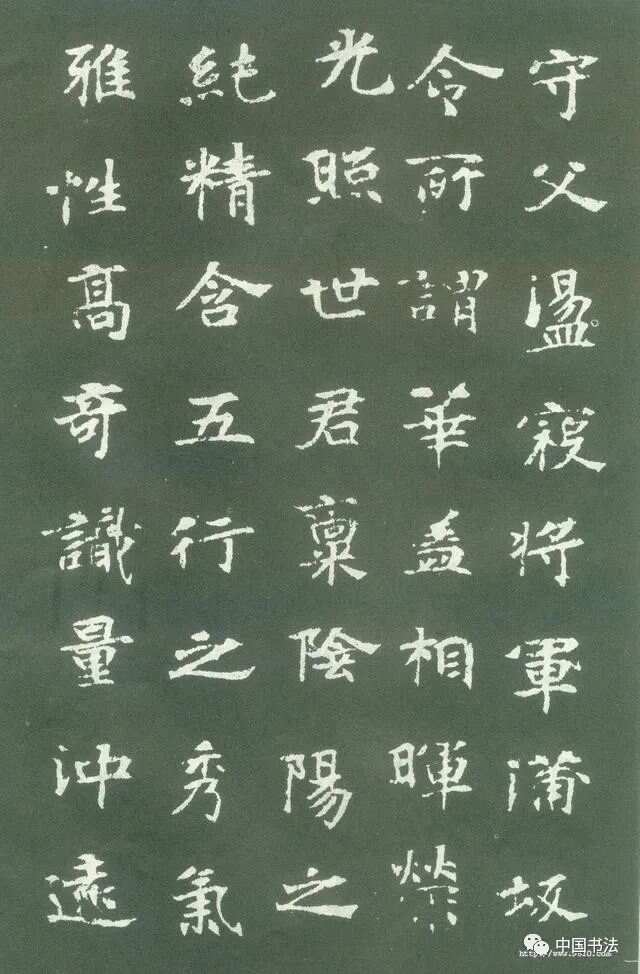 守父盪寇將軍蒲坂
令所謂華蓋相暉榮
光照世君稟陰陽之
純精含五行之秀氣
雅性高奇識量沖遠
中国书法